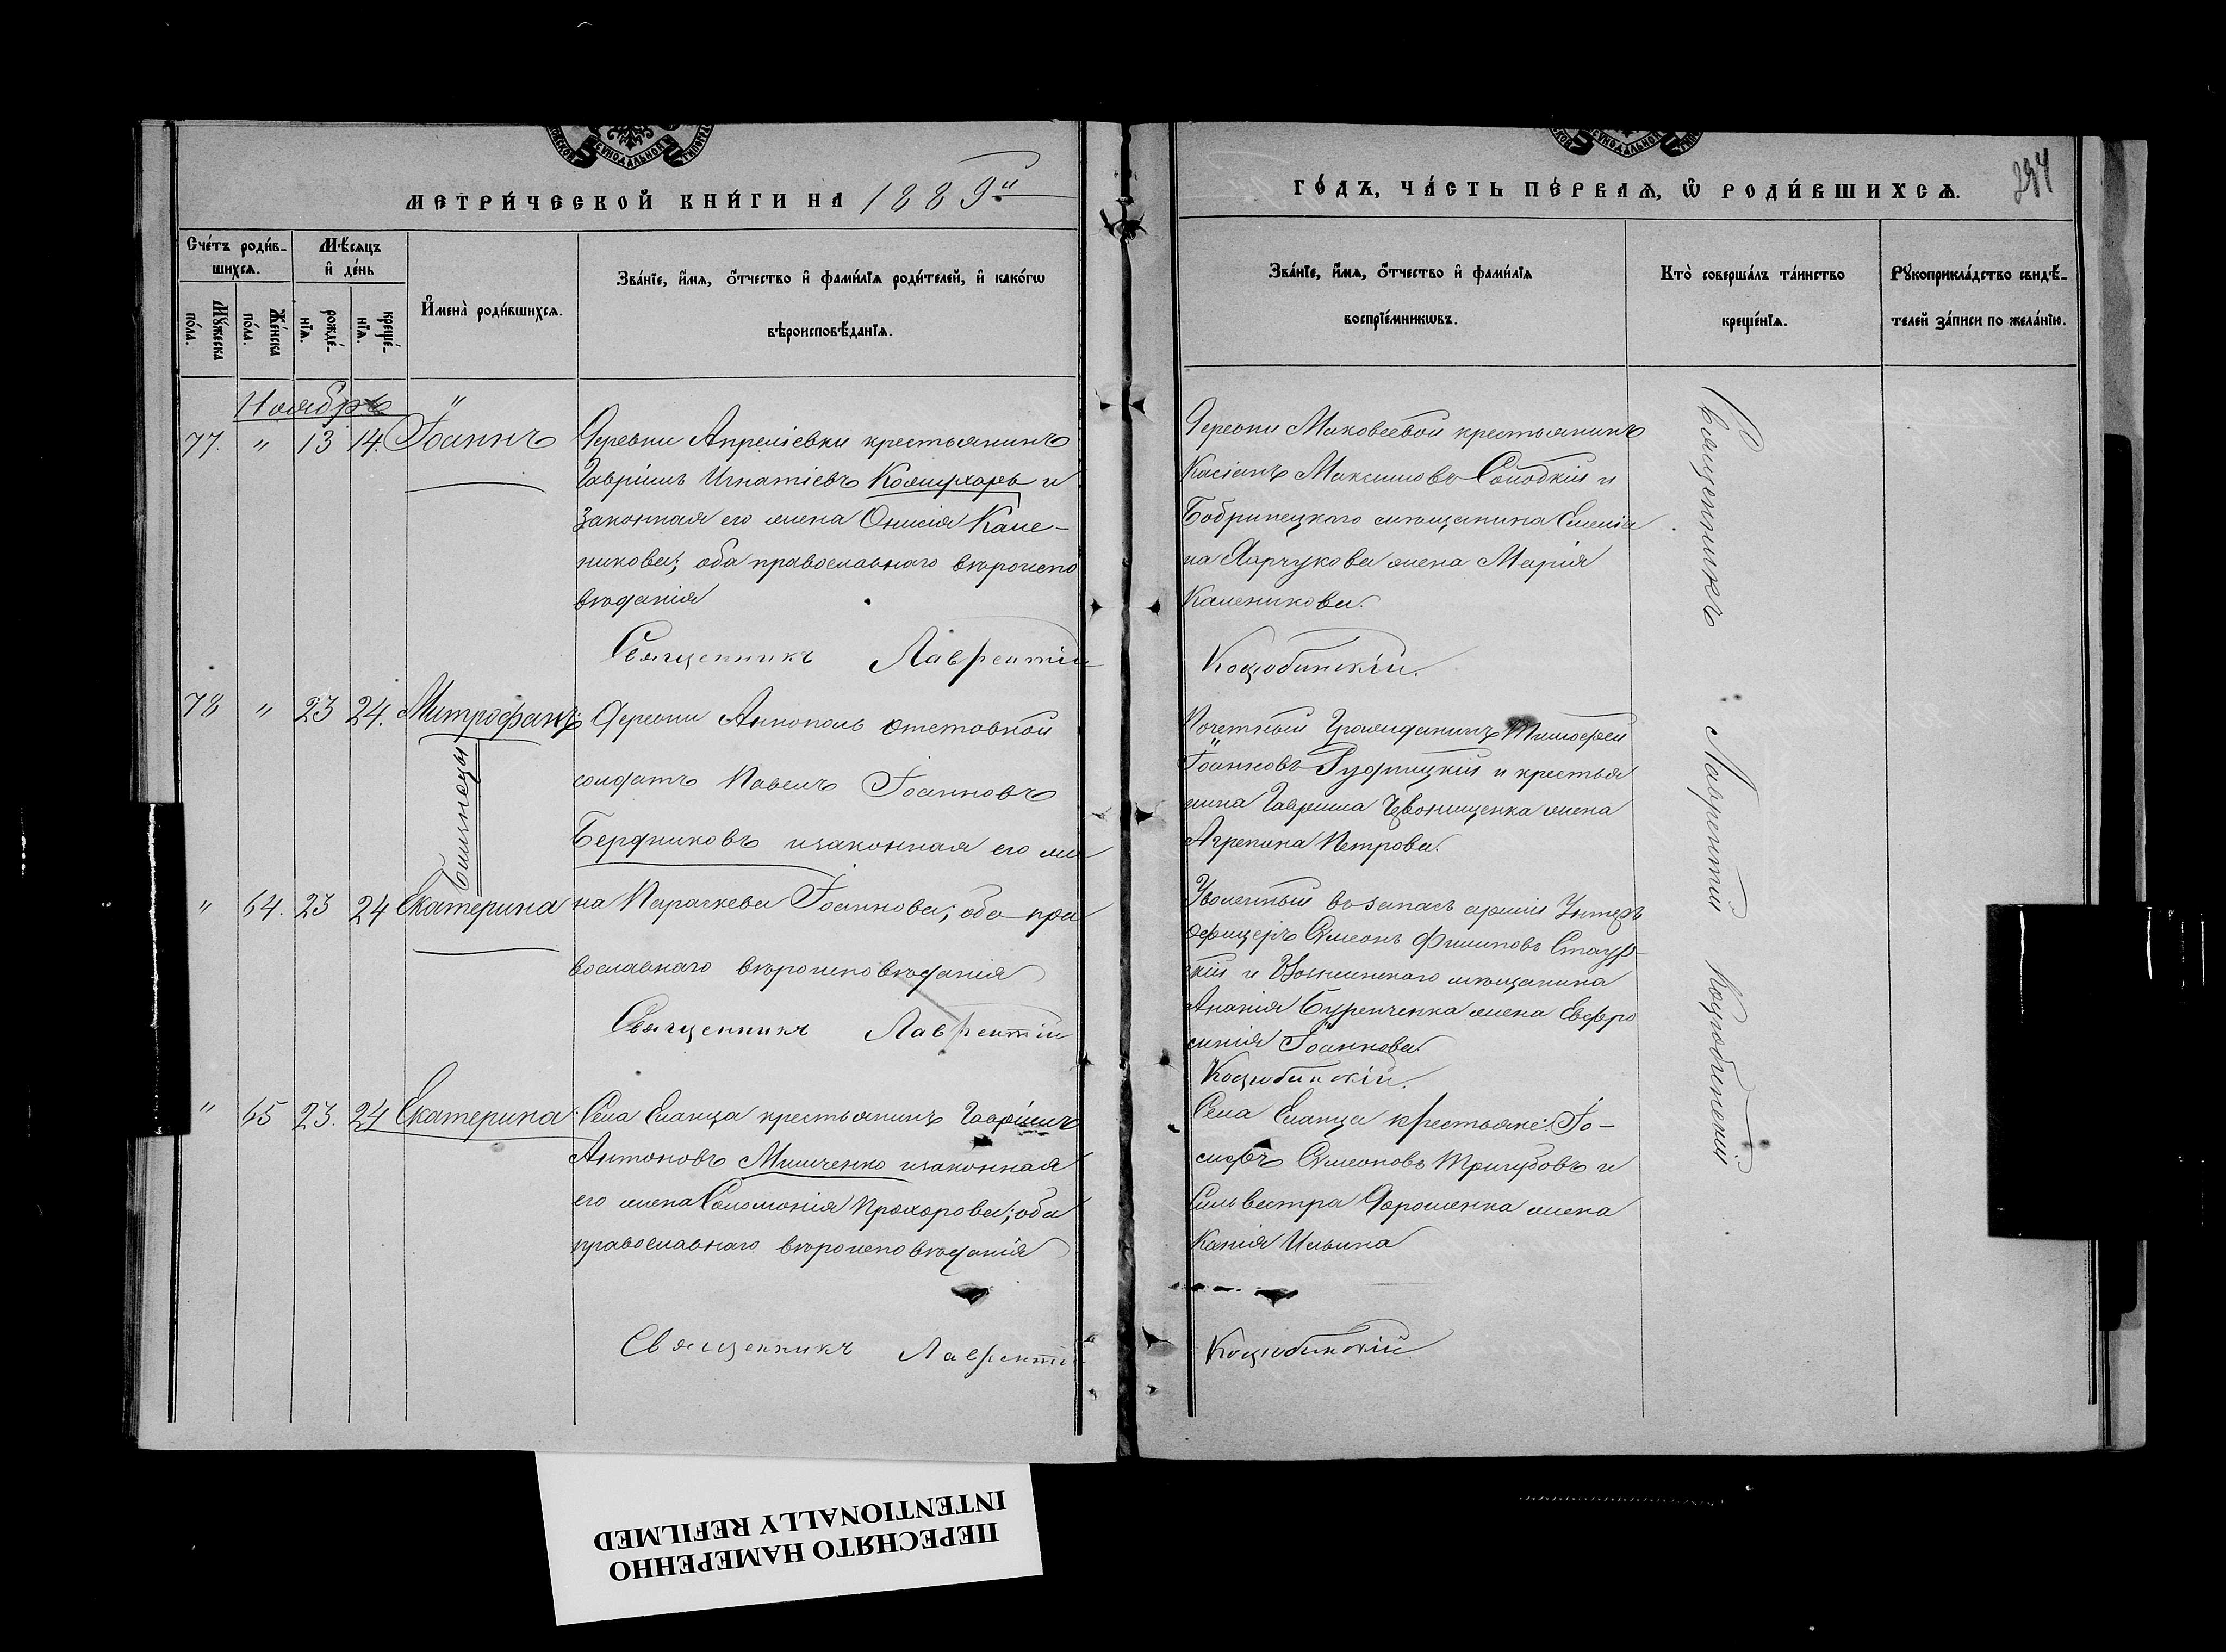 МЕТРИ́ЧЕСКОЙ КНИ́ГИ НА 1889й
ГО́ДЪ, ЧА́СТЬ ПЕ́РВАѦ, Ѡ҆ РОДИ́ВШИХСѦ.
Сче́тъ роди́в-
шихсѧ.
Мѣ́сѧцъ
и҆ де́нь
Мꙋ́жеска
по́ла.
Же́нска
по́ла.
рожде́-
нїѧ.
креще́-
нїѧ.
И҆мена̀ роди́вшихсѧ.
Зва́нїе, и҆́мѧ, ѻ҆́тчество и҆ фами́лїѧ роди́телей, и҆ како́гѡ
вѣроисповѣ́данїѧ.
Зва́нїе, и҆́мѧ, ѻ҆́тчество и҆ фами́лїѧ
воспрїе́мникѡвъ.
Кто̀ соверша́лъ та́инство
креще́нїѧ.
Рꙋкоприкла́дство свидѣ́-
телей за́писи по жела́нїю.
Ноябрь
77. " 13 14. Іоаннъ
Деревни Апреліевки крестьянинъ
Гавріилъ Игнатіевъ и
законная его жена Онисія Кале-
никова; оба православнаго вѣроиспо
вѣданія
Священникъ Лаврентій
Деревни Маковеевой крестьянинъ
Касіанъ Максимовъ и
Бобринецкаго мѣщанина Емелія
на жена Марія
Каленикова.
Коцюбинскій.
78 " 23 24. Митрофанъ
Близнецы
" 64. 23 24 Екатерина
Деревни Аннополь отставной
солдатъ Павелъ Іоанновъ
Бердниковъ и законная его же
на Параскева Іоаннова; оба пра
вославнаго вѣроисповѣданія
Священникъ Лаврентій
Почетный Гражданинъ Тимофей
Іоанновъ Рудницкій и крестья
нина Гавриила жена
Агрепина Петрова.
Уволенный въ запасъ арміи Унтеръ
офицеръ Сѵмеонъ Филиповъ
и мѣщанина
Ананія Буренченка жена Евфро
синія Іоаннова
Коцюбинскій.
" 65 23. 24 Екатерина
Села Еланца крестьянинъ Гавріилъ
Антоновъ Мишченко и законная
его жена Соломонія Прохорова; оба
православнаго вѣроисповѣданія
Священникъ Лаврентій
Села Еланца крестьяне: Іо-
сифъ Сѵмеоновъ Тригубовъ и
Сильвестра Дорошенка жена
Ксенія Ильина
Коцюбинскій
Священникъ Лаврентій Коцюбинскій
ПЕРЕСНЯТО НАМЕРЕННО
INTENTIONALLY REFILMED